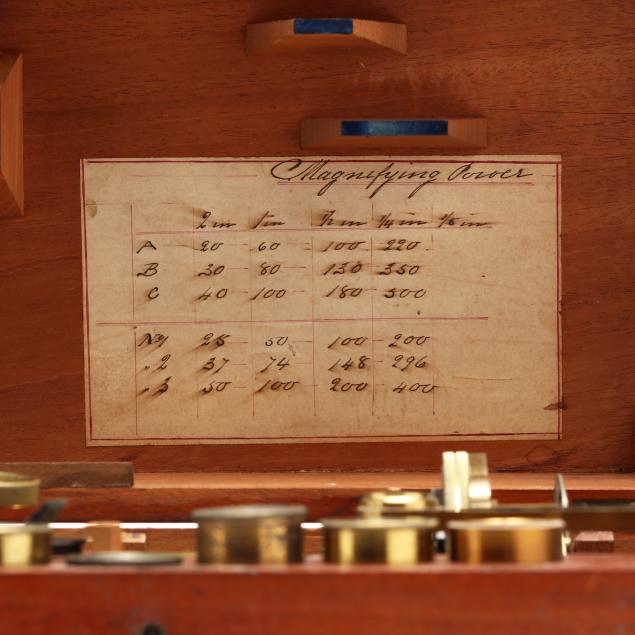 Magnifying Power
2 in 1 in 1/2 in 1/4 in 1/8 in
A 20 60 100 220
B 30 80 130 350
C 40 100 180 500
No 1 25 50 100 200
" 2 37 74 148 296
" 3 50 100 200 400